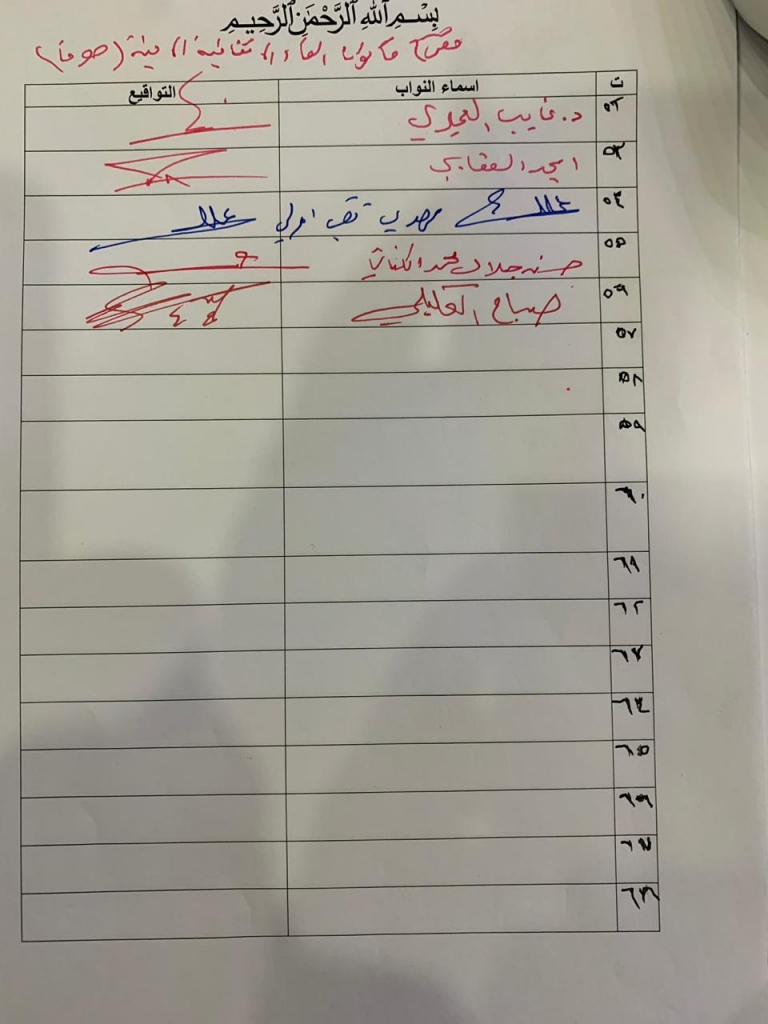 بِسْمِ ٱللَّٰهِ ٱلرَّحْمَٰنِ ٱلرَّحِيمِ
مقترح قانون الغاء الاستثنائية
ت اسماء النواب التواقيع
٥٢ د. غايب العميري
٥٣ امجد العقابي
٥٤ مهدي تقي امرلي
٥٥ حسنه جلال محمد الكناني
٥٦ صباح العكيلي
٥٧
٥٨
٥٩
٦٠
٦١
٦٢
٦٣
٦٤
٦٥
٦٦
٦٧
٦٨